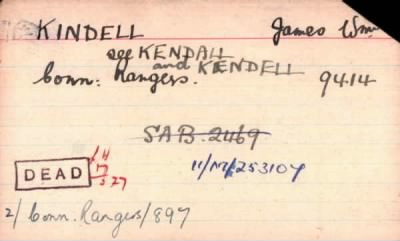 KINDELL James Wm
see KENDALL
and KENDELL
Conn: Rangers. 9414
SAB. 2469
11/M/253104
DEAD
17
5 27
2/ Conn. Rangers/897